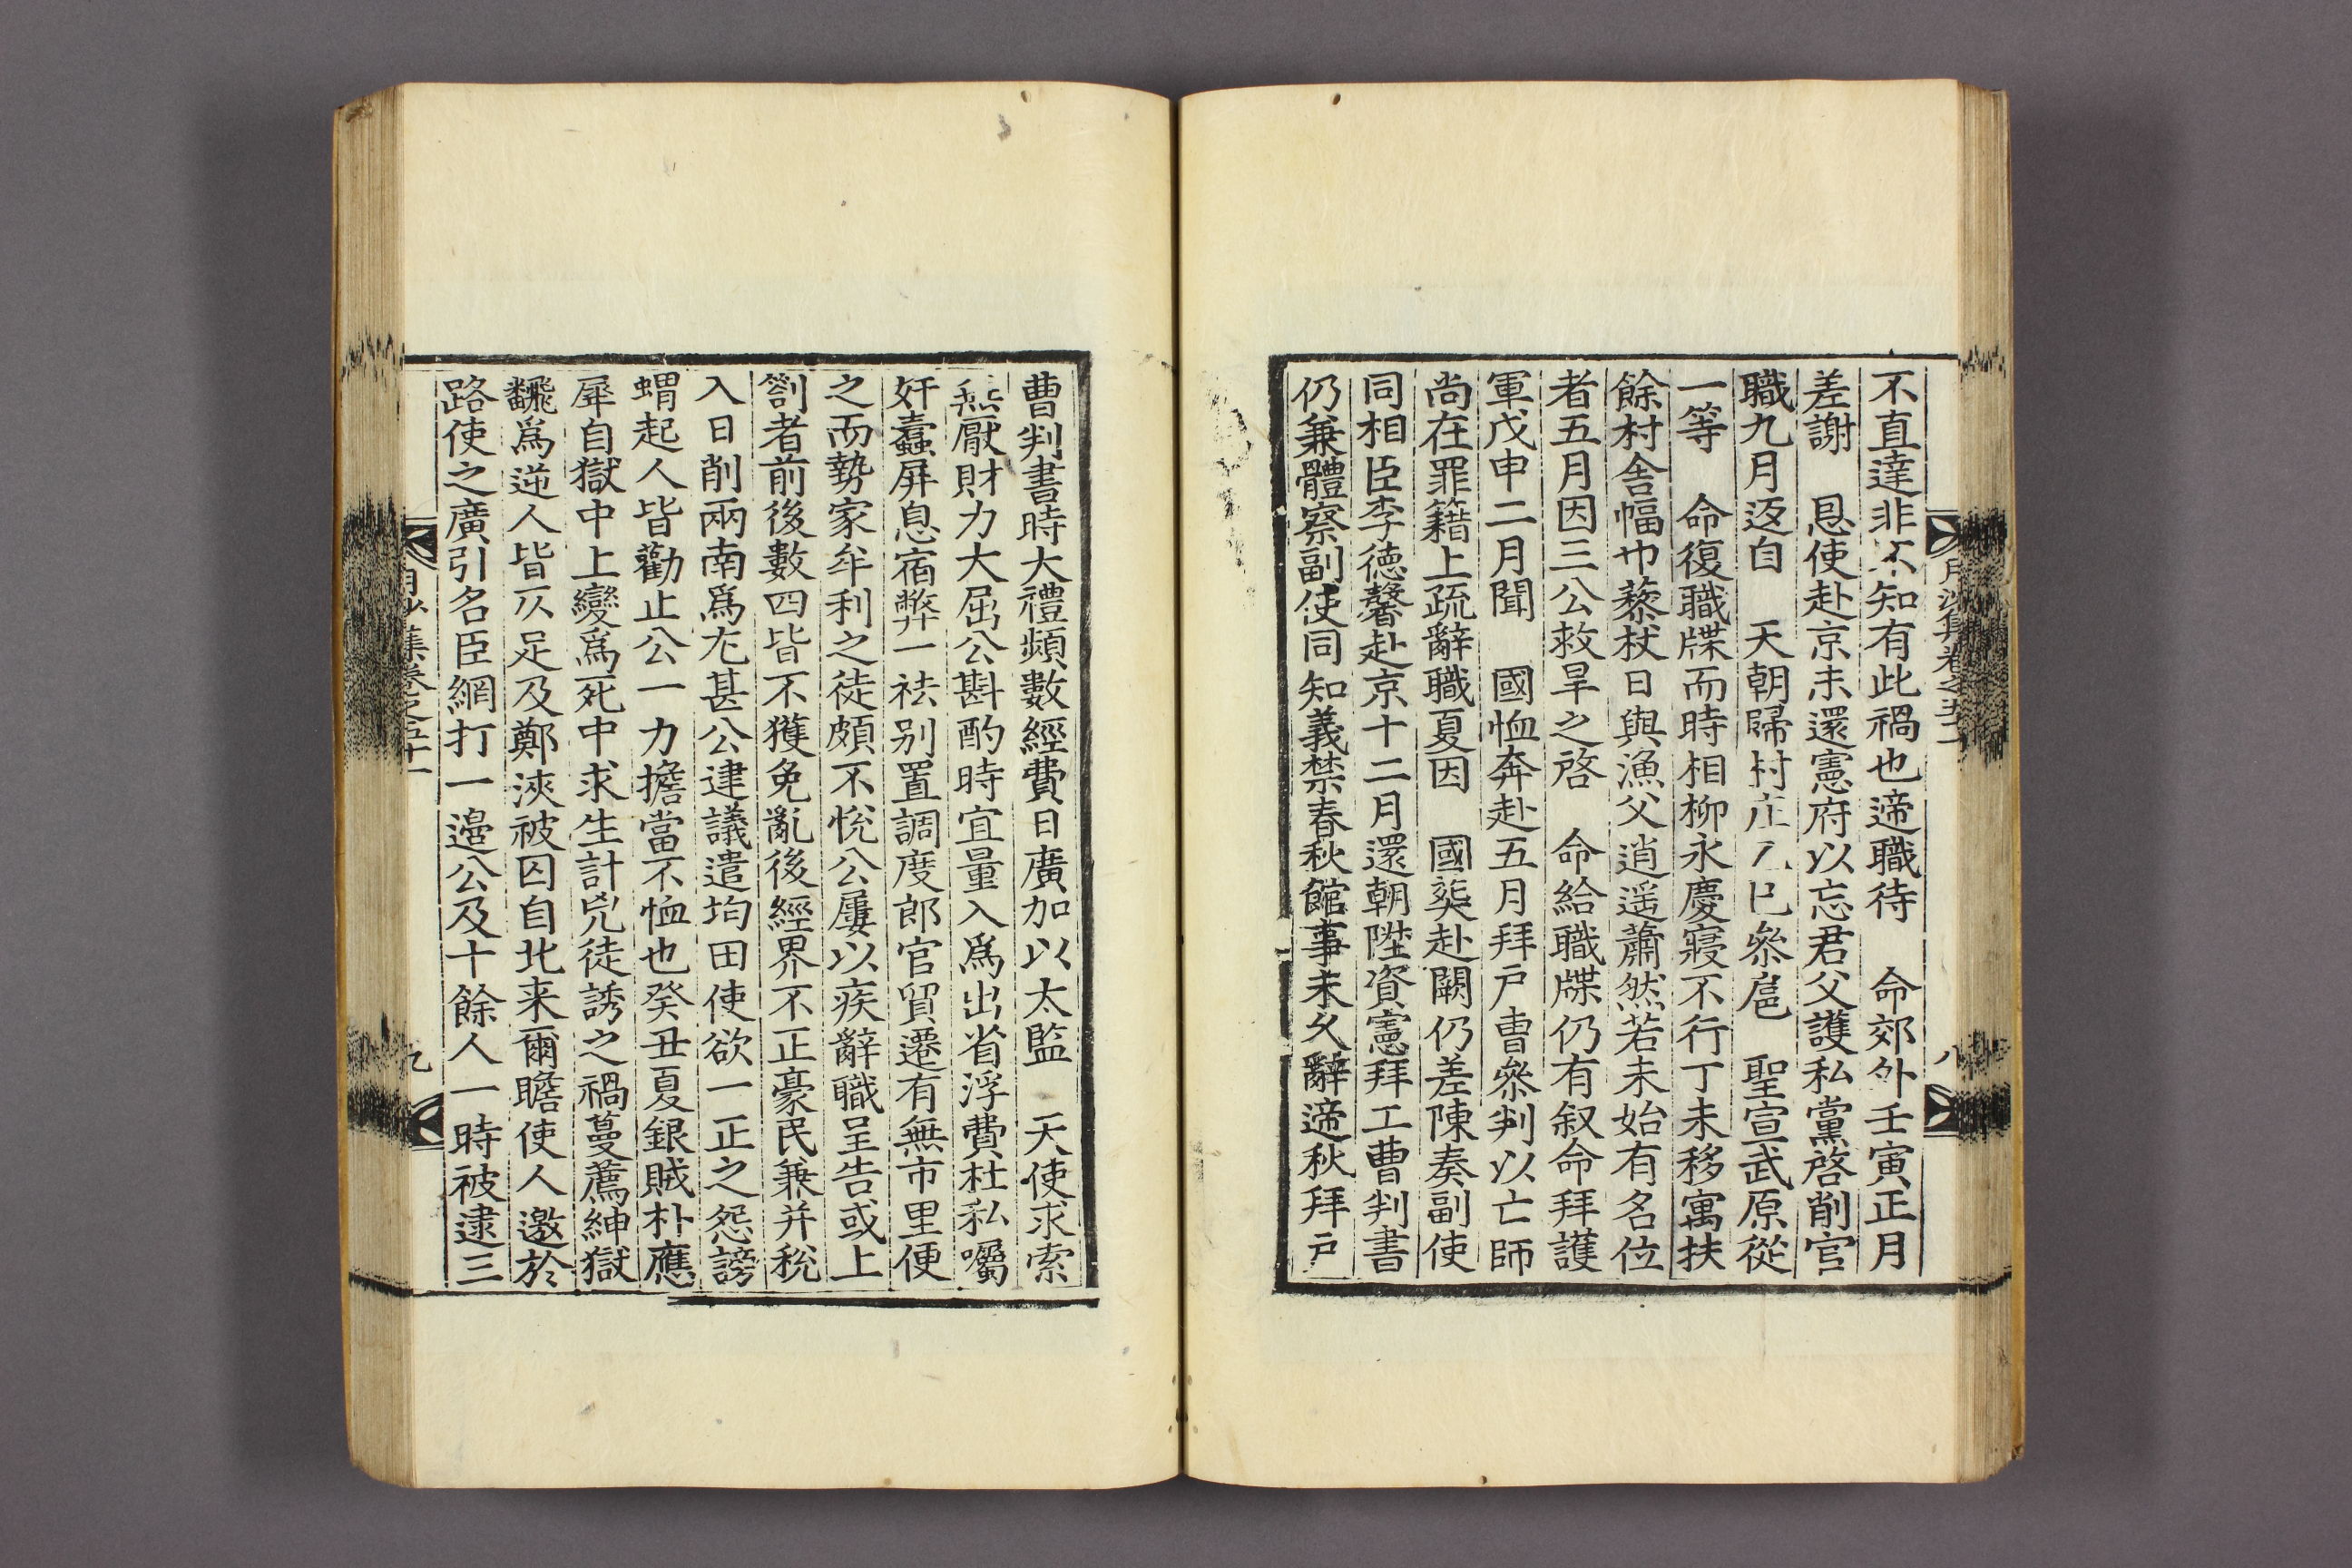 不直達非不知有此禍也遞職待　命郊外壬寅正月
差謝　恩使赴京未還憲府以忘君父護私黨啓削官
職九月返自　天朝歸村庄乙巳參扈　聖宣武原從
一等　命復職牒而時相柳永慶寢不行丁未移寓扶
餘村舍幅巾藜杖日與漁父逍遥蕭然若未始有名位
者五月因三公救旱之啓　命給職牒仍有叙命拜護
軍戊申二月聞　國恤奔赴五月拜戶曹參判以亡師
尚在罪籍上疏辭職夏因　國葬赴闕仍差陳奏副使
同相臣李德馨赴京十二月還朝陞資憲拜工曹判書
仍兼體察副使同知義禁春秋館事未久辭遞秋拜戶
曹判書時大禮頻數經費日廣加以太監　天使求索
無厭財力大屈公斟酌時宜量入爲出省浮費杜私囑
奸蠹屏息宿弊一祛別置調度郎官貿遷有無市里便
之而勢家牟利之徒頗不悅公屢以疾辭職呈告或上
劄者前後數四皆不獲免亂後經界不正豪民兼并稅
入日削兩南爲尤甚公建議遣均田使欲一正之怨謗
蝟起人皆勸止公一力擔當不恤也癸丑夏銀賊朴應
犀自獄中上變爲死中求生計兇徒誘之禍蔓薦紳獄
飜爲逆人皆仄足及鄭浹被囚自北来爾瞻使人邀於
路使之廣引名臣網打一邊公及十餘人一時被逮三
月沙集卷之五十一
八
月沙集卷之五十一
九